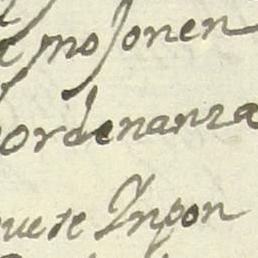 mosonen
ordenanza
que se Inpon